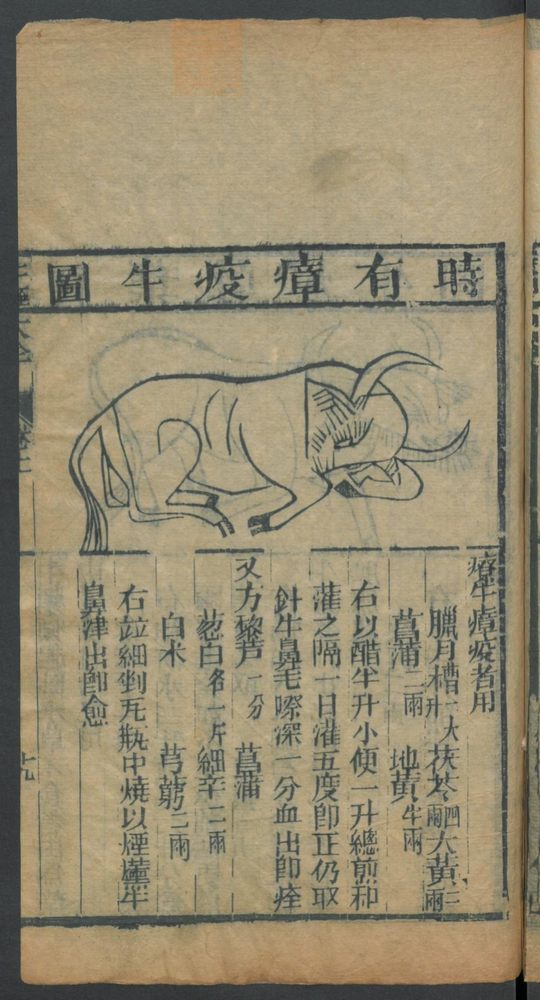 時有瘴疫牛圖
療牛瘴疫者用
臘月槽一大升茯苓四兩大黃三兩
菖蒲二兩 地黃半兩
右以醋半升小便一升總煎和
灌之隔一日灌五度即正仍取
針牛鼻毛際深一分血出即痊
又方藜芦一分 菖蒲
葱白各一斤細辛二兩
白朮 芎藭二兩
右竝細剉瓦瓶中燒以煙薰牛
鼻津出即愈